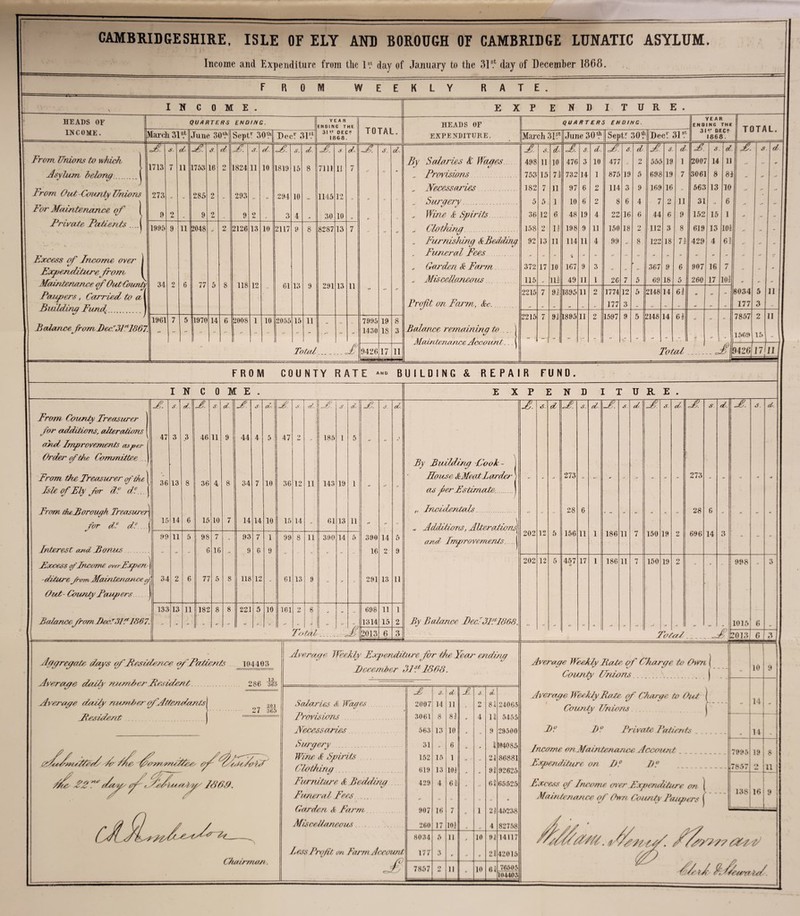 CAMBRIDGESHIRE, ISLE OF ELY AND BOROUGH OF CAMBRIDGE LUNATIC ASYLUM.
Income and Expenditure from the 1st day of January to the 31st day of December 1868.
FROM WEEKLY RATE.
INCOME.
HEADS OF INCOME. QUARTERS ENDING. YEAR ENDING THE 31st DECr 1868. TOTAL.
March 31st June 30th Septr 30th Decr 31st
£. s. d. £. s. d. £. s. d. £. s. d. £. s. d. £. s. d.
From Unions to which Asylum belong 1713 7 11 1753 16 2 1824 11 10 1819 15 8 7111 11 7
From Out-County Unions 273 - - 285 2 - 293 - - 294 10 - 1145 12 -
For Maintenance of Private Patients 9 2 - 9 2 - 9 2 - 3 4 - 30 10 -
1995 9 11 2048 - 2 2126 13 10 2117 9 8 8287 13 7
Excess of Income over Expenditure from Maintenance of Out County Paupers, Carried to a Building Fund 34 2 6 77 5 8 118 12 - 61 13 9 291 13 11
1961 7 5 1970 14 6 2008 1 10 2055 15 11 - - - 7995 19 8
Balance from Decr 31st 1867. 1430 18 3
Total £ 9426 17 11
EXPENDITURE.
HEADS OF EXPENDITURE. QUARTERS ENDING. YEAR ENDING THE 31st DECr 1868. TOTAL.
March 31st June 30th Septr 30th Decr 31st
£. s. d. £. s. d. £. s. d. £. s. d. £. s. d. £. s. d.
By Salaries & Wages 498 11 10 476 3 10 477 - 2 555 19 1 2007 14 11
" Provisions 753 15 7½ 732 14 1 875 19 5 698 19 7 3061 8 8½
" Necessaries 182 7 11 97 6 2 114 3 9 169 16 - 563 13 10
" Surgery 5 5 1 10 6 2 8 6 4 7 2 11 31 - 6
" Wine & Spirits 36 12 6 48 19 4 22 16 6 44 6 9 152 15 1
" Clothing 158 2 1½ 198 9 11 150 18 2 112 3 8 619 13 10½
" Furnishing & Bedding 92 13 11 114 11 4 99 - 8 122 18 7½ 429 4 6½
" Funeral Fees
" Garden & Farm 372 17 10 167 9 3 - - - 367 9 6 907 16 7
" Miscellaneous 115 - 11½ 49 11 1 26 7 5 69 18 5 260 17 10½
2215 7 9½ 1895 11 2 1774 12 5 2148 14 6½ - - - 8034 5 11
Profit on Farm, &c. 177 3 - 177 3 -
2215 7 9½ 1895 11 2 1597 9 5 2148 14 6½ 7857 2 11
Balance remaining to Maintenance Account 1569 15 -
Total £ 9426 17 11
FROM COUNTY RATE AND BUILDING & REPAIR FUND.
INCOME.
£. s. d. £. s. d. £. s. d. £. s. d. £. s. d. £. s. d.
From County Treasurer for additions, alterations and Improvements as per Order of the Committee 47 3 3 46 11 9 44 4 5 47 2 - 185 1 5
From the Treasurer of the Isle of Ely for do do 36 13 8 36 4 8 34 7 10 36 12 11 143 19 1
From the Borough Treasurer for do do 15 14 6 15 10 7 14 14 10 15 14 - 61 13 11
99 11 5 98 7 - 93 7 1 99 8 11 390 14 5 390 14 5
Interest and Bonus 6 16 - 9 6 9 16 2 9
Excess of Income over Expenditure from Maintenance of Out-County Paupers 34 2 6 77 5 8 118 12 - 61 13 9 291 13 11
133 13 11 182 8 8 221 5 10 161 2 8 698 11 1
Balance from Decr 31st 1867. 1314 15 2
Total £ 2013 6 3
EXPENDITURE.
£. s. d. £. s. d. £. s. d. £. s. d. £. s. d. £. s. d.
By Building Cook-House & Meat Larder as per Estimate 273 - - 273 - -
" Incidentals 28 6 - 28 6 -
" Additions, Alterations and Improvements 202 12 5 156 11 1 186 11 7 150 19 2 696 14 3
202 12 5 457 17 1 186 11 7 150 19 2 998 - 3
By Balance Decr 31st 1868. 1015 6 -
Total £ 2013 6 3
Aggregate days of Residence of Patients 104403
Average daily number Resident 286 13/365
Average daily number of Attendants Resident 27 101/365
Submitted to the Committee of Visitors
the 22nd day of February 1869.
Chairman.
Average Weekly Expenditure for the Year ending
December 31st 1868.
£ s. d. £ s. d.
Salaries & Wages 2007 14 11 2 8¼ 24065
Provisions 3061 8 8½ 4 1¼ 5455
Necessaries 563 13 10 9 29500
Surgery 31 - 6 ½ 94085
Wine & Spirits 152 15 1 2¼ 86881
Clothing 619 13 10½ 9¾ 92625
Furniture & Bedding 429 4 6½ 6¾ 65525
Funeral Fees
Garden & Farm 907 16 7 1 2½ 45238
Miscellaneous 260 17 10½ 4 82758
8034 5 11 10 9¼ 14117
Less Profit on Farm Account 177 3 - 2¾ 42015
£ 7857 2 11 10 6¼ 76505/104403
Average Weekly Rate of Charge to Own County Unions - 10 9
Average Weekly Rate of Charge to Out County Unions - 14 -
Do Do Private Patients - 14 -
Income on Maintenance Account 7995 19 8
Expenditure on Do Do 7857 2 11
Excess of Income over Expenditure on Maintenance of Own County Paupers 138 16 9
Clerk & Steward.